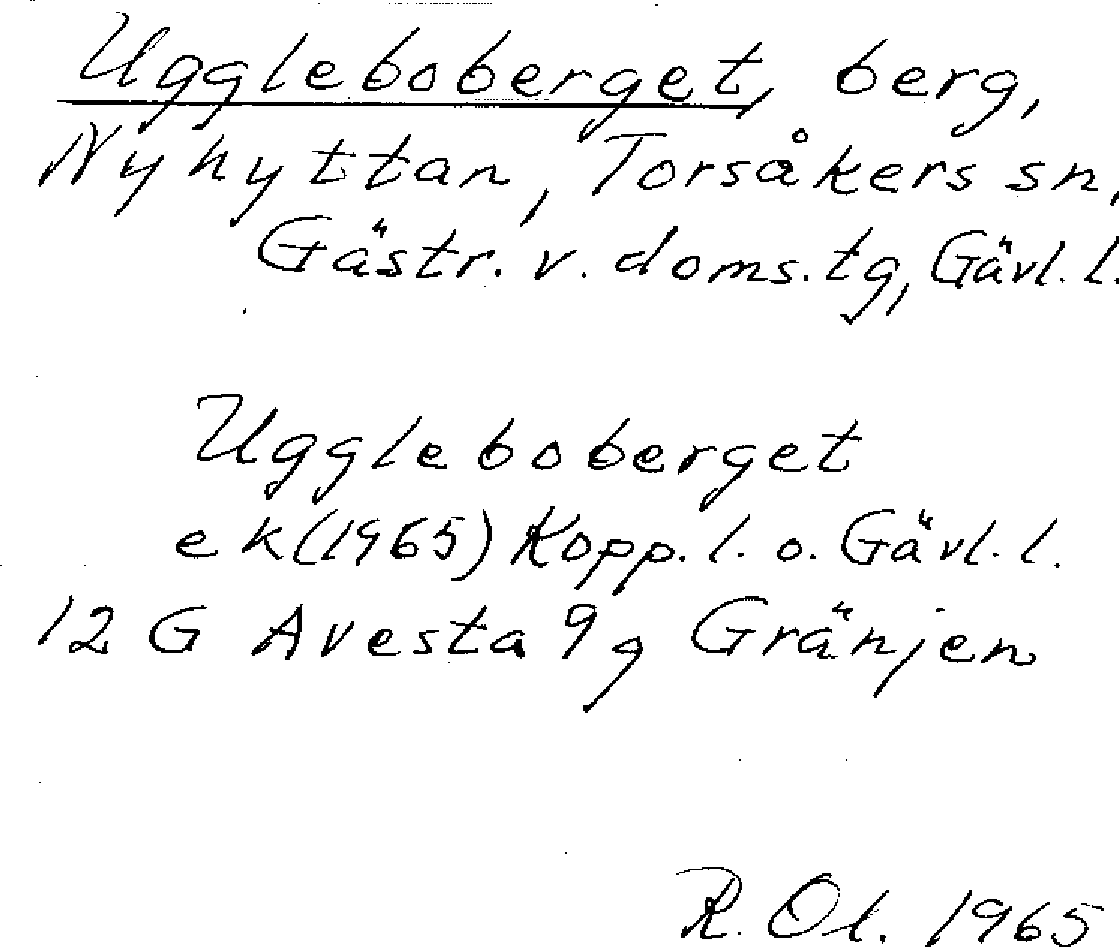 Uggleboberget, berg,
Nyhyttan, Torsåkers sn,
Gästr. v. doms. tg, Gävl. l.
Uggleboberget
ek (1965) Kopp. l. o. Gävl. l.
12 G Avesta 9g Gränjen
R. Ol. 1965